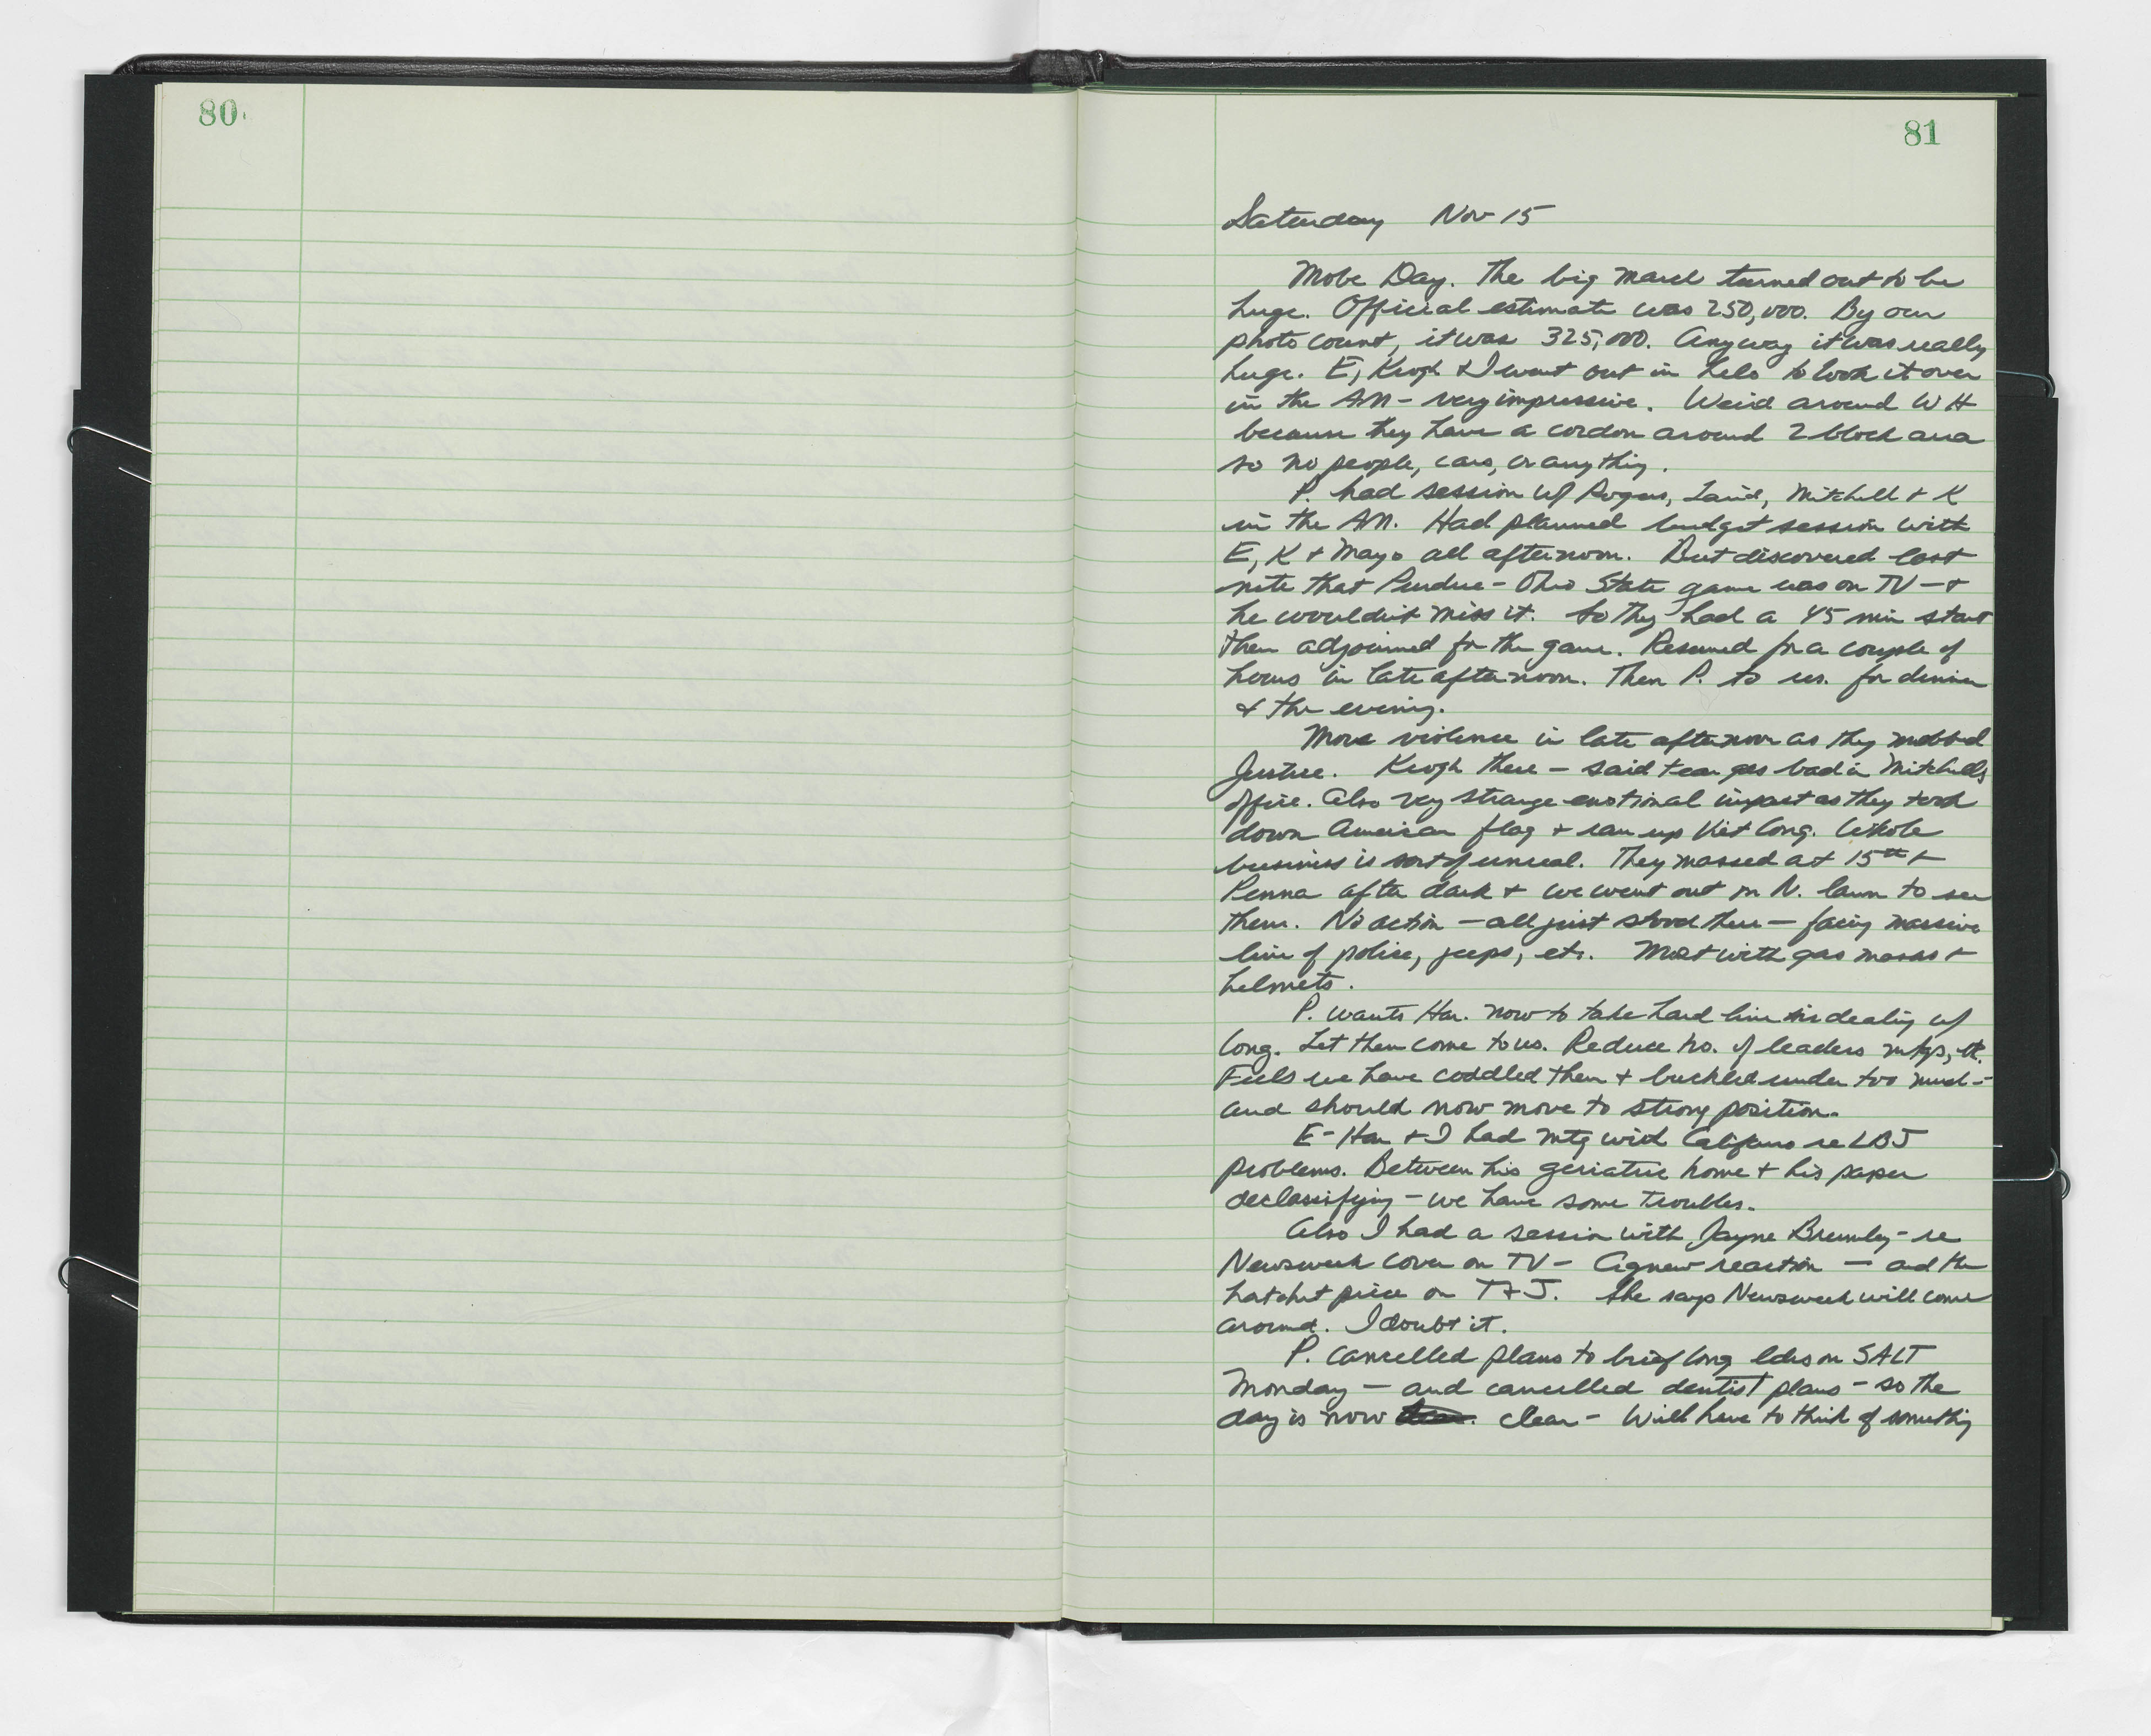 80.
81
Saturday Nov 15
Mobe Day. The big march turned out to be
huge. Official estimate was 250,000. By our
photo count, it was 325,000. Anyway it was really
huge. E, Krogh & I went out in helo to look it over
in the AM - very impressive. Weird around WH
because they have a cordon around 2 block area
so no people, cars, or anything.
P. had session w/ Rogers, Laird, Mitchell & K
in the AM. Had planned budget session with
E, K & Mayo all afternoon. But discovered last
nite that Purdue - Ohio State game was on TV - &
he wouldn't miss it. So they had a 45 min start
then adjourned for the game. Resumed for a couple of
hours in late afternoon. Then P. to res. for dinner
& the evening.
More violence in late afternoon as they mobbed
Justice. Krogh there - said tear gas bad in Mitchell's
office. Also very strange emotional impact as they took
down American flag & ran up Viet Cong. Whole
business is sort of unreal. They massed at 15th &
Penna after dark & we went out on N. lawn to see
them. No action - all just stood there - facing massive
line of police, jeeps, etc. Most with gas masks &
helmets.
P. wants Har. now to take hard line in dealing w/
Cong. Let them come to us. Reduce no. of leaders mtgs, etc.
Feels we have coddled them & buckled under too much -
and should now move to strong position.
E - Har & I had mtg with Califano re LBJ
problems. Between his geriatric home & his paper
declassifying - we have some troubles.
Also I had a session with Jayne Brumley - re
Newsweek cover on TV - Agnew reaction - and the
hatchet piece on T & J. She says Newsweek will come
around. I doubt it.
P. cancelled plans to brief Cong ldrs on SALT
Monday - and cancelled dentist plans - so the
day is now clear - Will have to think of something